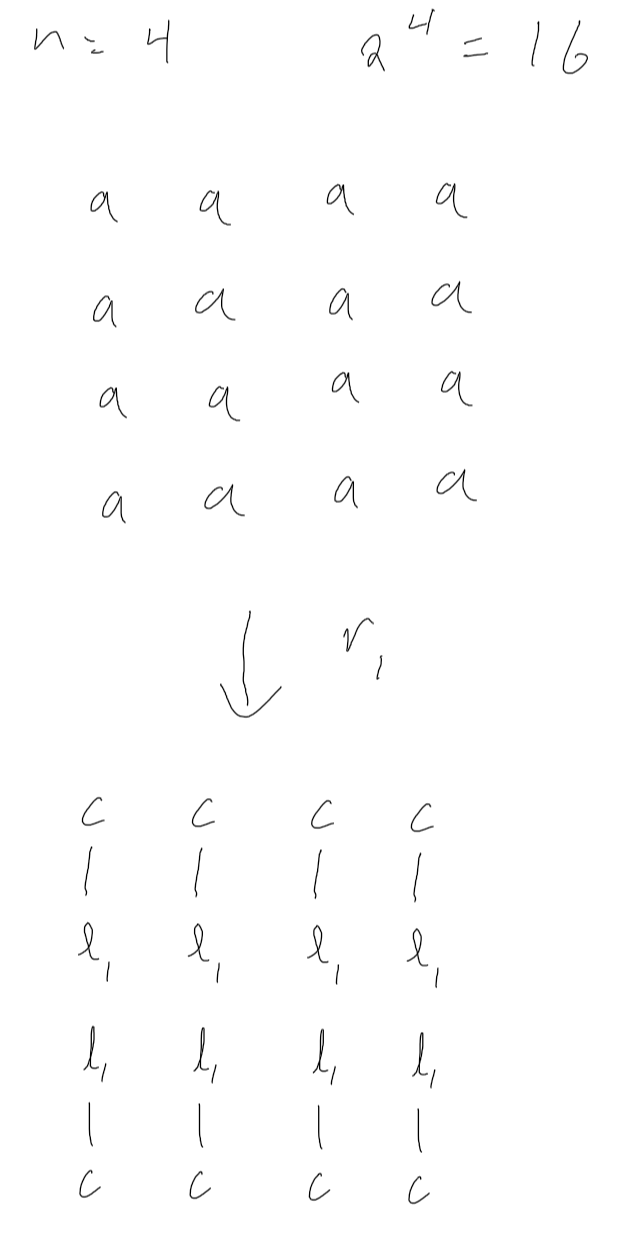 n = 4 2^4 = 16
a a a a
a a a a
a a a a
a a a a
↓ r₁
c c c c
| | | |
l₁ l₁ l₁ l₁
l₁ l₁ l₁ l₁
| | | |
c c c c